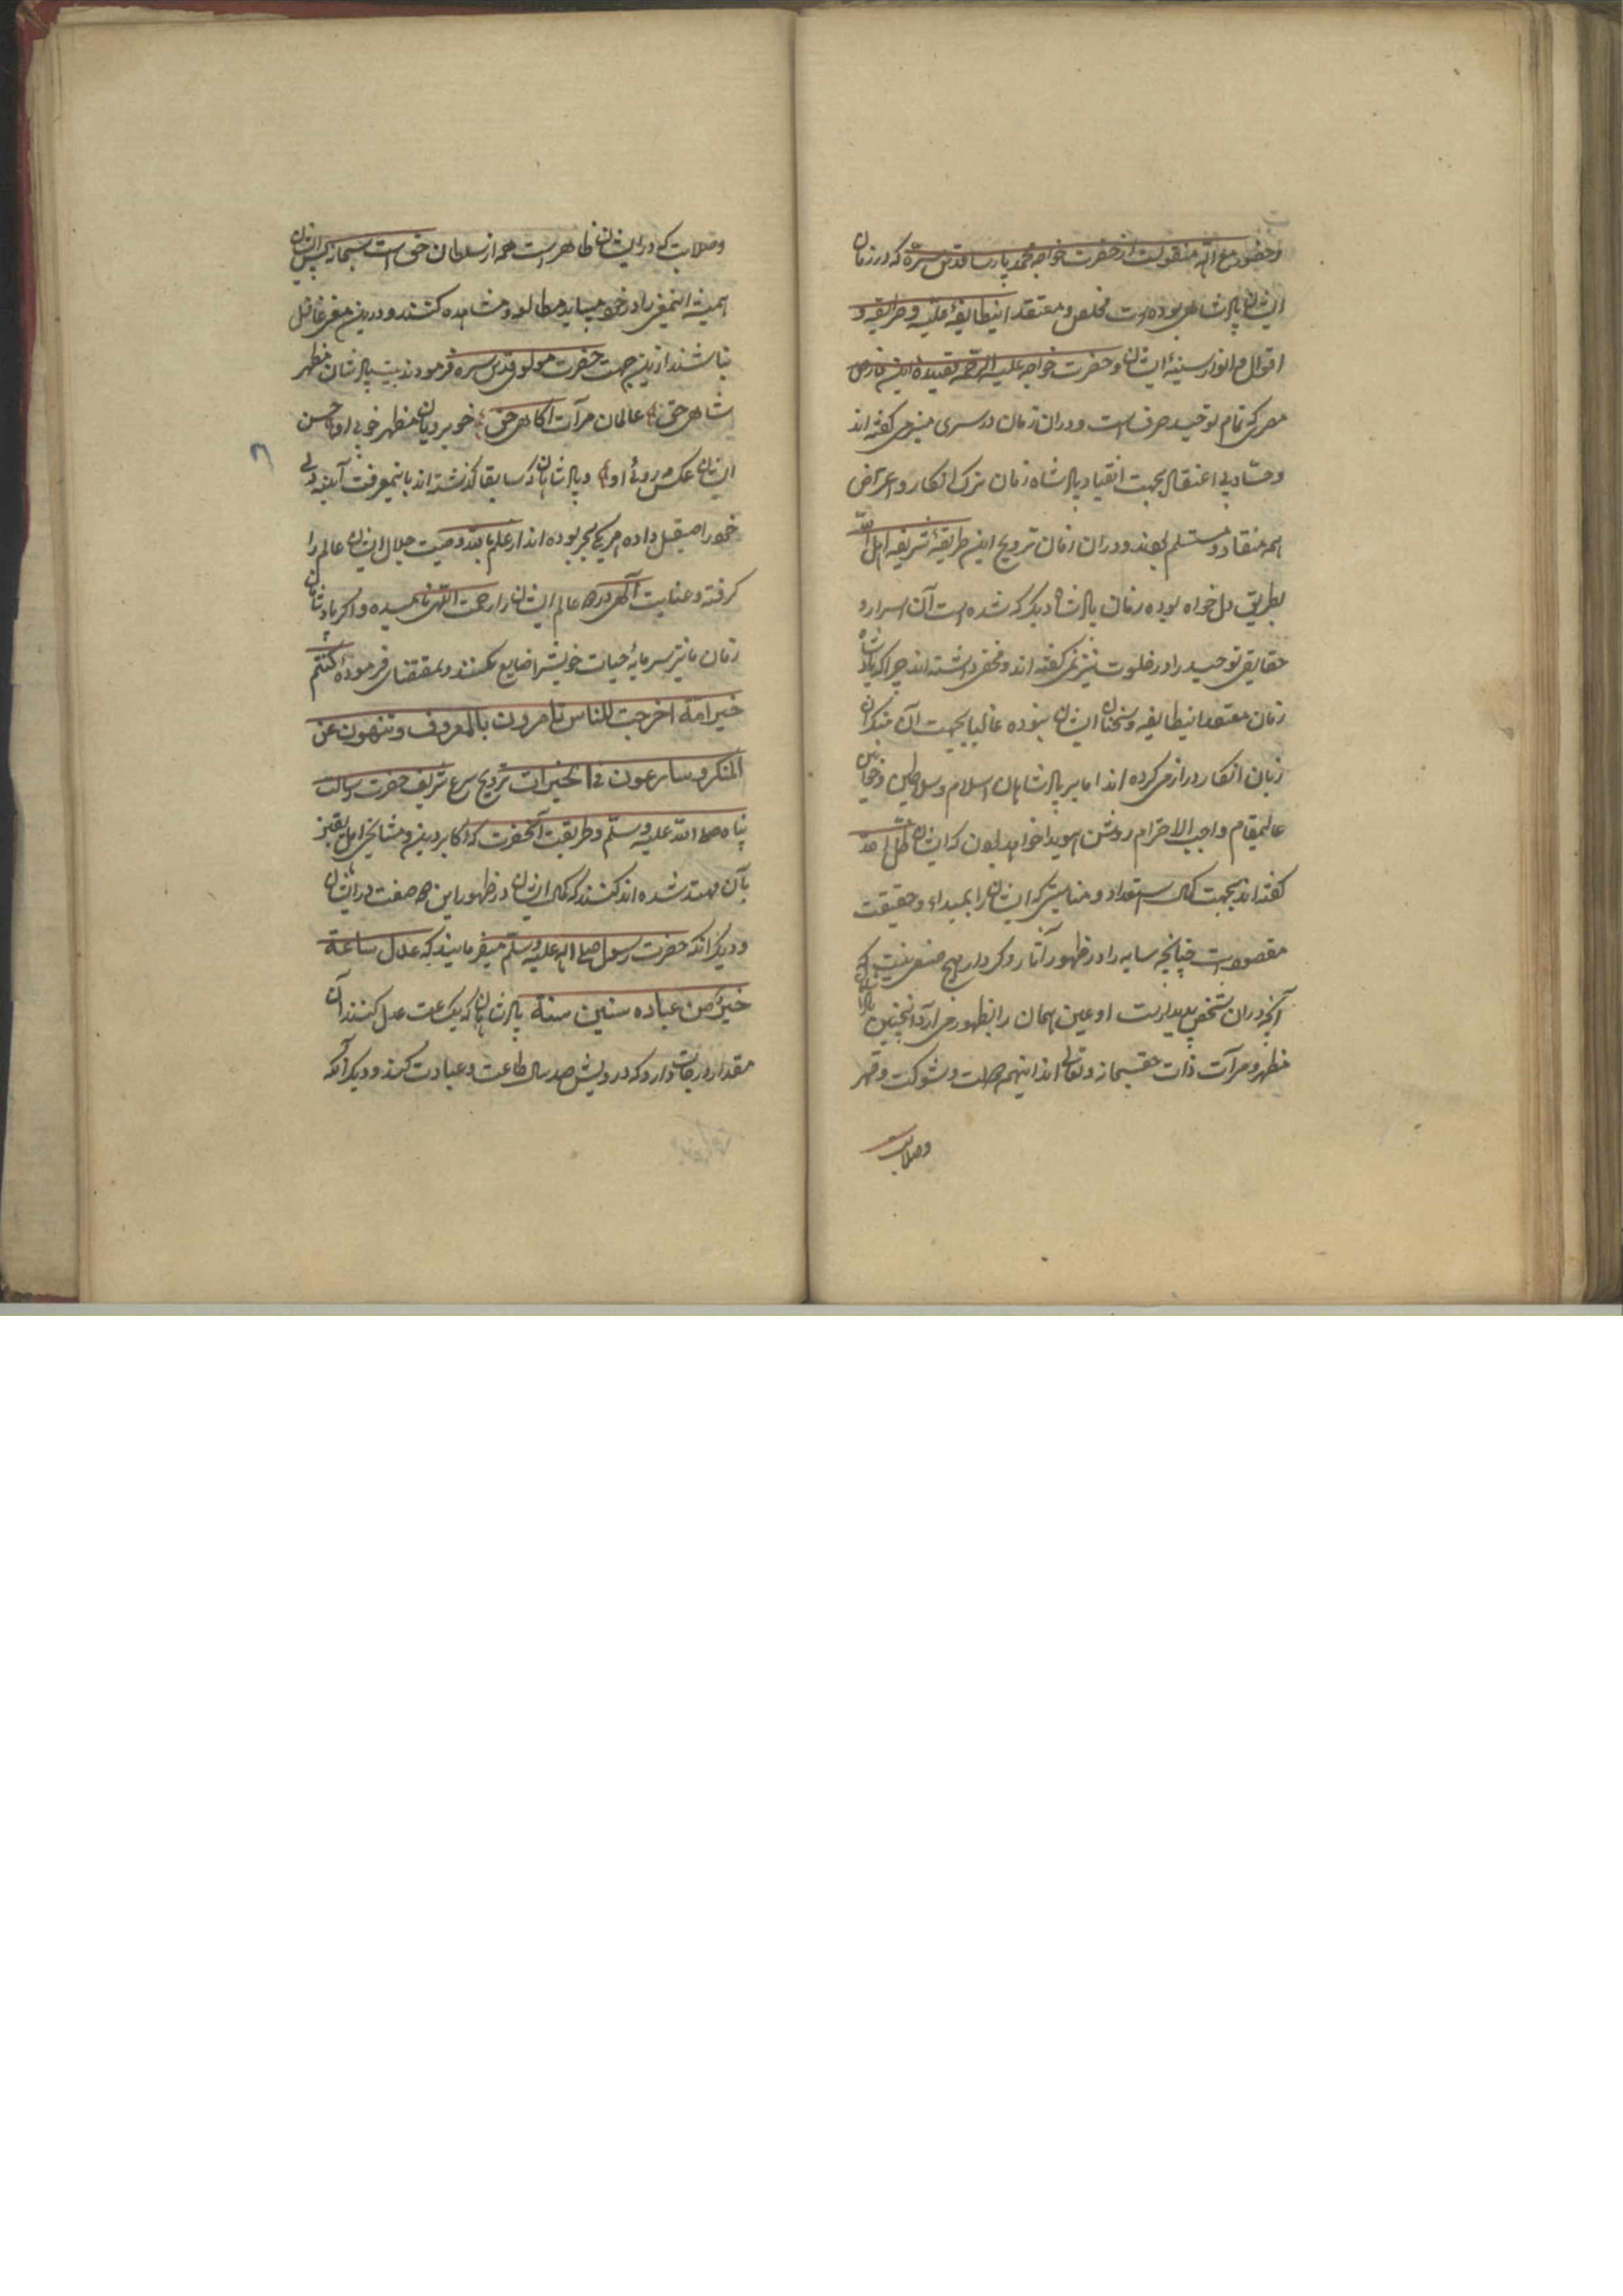 وحضور مع الله منقولست از حضرت خواجه محمد پارسا قدس سره که در زمان
ایشان پادشاهی بوده است مخلص و معتقد اینطایفهٔ علیّه و طریقه و
اقوال و انوار سینهٔ ایشان و حضرت خواجه علیه الرحمه قصیدهٔ ابن فارض
مصری که تمام توحید صرف است و دران زمان در سری منبر می گفته اند
و حساد بی اعتقال بجهت انقیاد پادشاه زمان ترک انکار و اعتراض
همه منقاد و مستسلم بودند و دران زمان ترویج این طریقهٔ شریفه اهل الله
بطریق دل خواه بوده زمان پادشاه دیگر که شده است آن اسرار و
حقایق توحید را در خلوت نیز نمی گفته اند و مخفی داشته اند چراکه پادشاه
زمان معتقد اینطایفه و سخنان ایشان نبوده غالبا بجهت آن منکران
زبان انکار دراز می کرده اند اما بر پادشاهان اسلام و سلاطین و خواقین
عالیمقام واجب الاحترام روشن هویدا خواهد بودن که ایشان ظل الله
گفته اند بجهت کمال استعداد و مناسبتی که ایشان را بمبداء و حقیقت
مقصود است چنانچه سایه را در ظهور آثار و کردار هیچ صنعی نیست که
آنچه دران شخص پدیدارست او عین همان را بظهور می آرد اینچنین پادشاهان
مظهر و مرآت ذات حق سبحانه و تعالی اند اینهمه صولت و شوکت و قهر
وصلابت
وصلابت که در ایشان ظاهر است همه از سلطان حق است سبحانه پس ایشان
همیشه اینمعنی را در خود میباید مطالعه و مشاهده کنند و درین معنی غافل
نباشند ازین جهت حضرت مولوی قدس سره فرمودند بیت پادشاهان مظهر
شاهی حق عالمان مرآت آگاهی حق خوبرویان مظهر خوبی او حسن
ایشان عکس روی او و پادشاهان که سابقا گذشته اند باینمعرفت آینهٔ دل
خود را صیقل داده هر یکی بحر بوده اند از علم بالله وصیت جلال ایشان عالم را
گرفته و عنایت آگهی در هر دو عالم ایشان را رحمت اللهی نامیده و اگر پادشاهان
زمان ما نیز سرمایهٔ حیات خویش را ضایع نکنند و بمقتضای فرمودهٔ کنتم
خیر امة اخرجت للناس تامرون بالمعروف وتنهون عن
المنکر و سارعون فی الخیرات ترویج شرع شریف حضرت رسالت
پناه صلی الله علیه وسلم و طریقت آنحضرت که اکابر دین و مشایخ اهل یقین
بآن مهتد شده اند کنند که کمال ایشان در ظهور این هر دو صفت در ایشان
و دیگر آنکه حضرت رسول صلی الله علیه وسلم میفرمایند که عدل ساعة
خیرٌ من عبادة ستین سنة پادشاهان که یک ساعت عدل کنند آن
مقدار درجات دارد که درویش صد سال طاعت و عبادت کند و دیگر آنکه